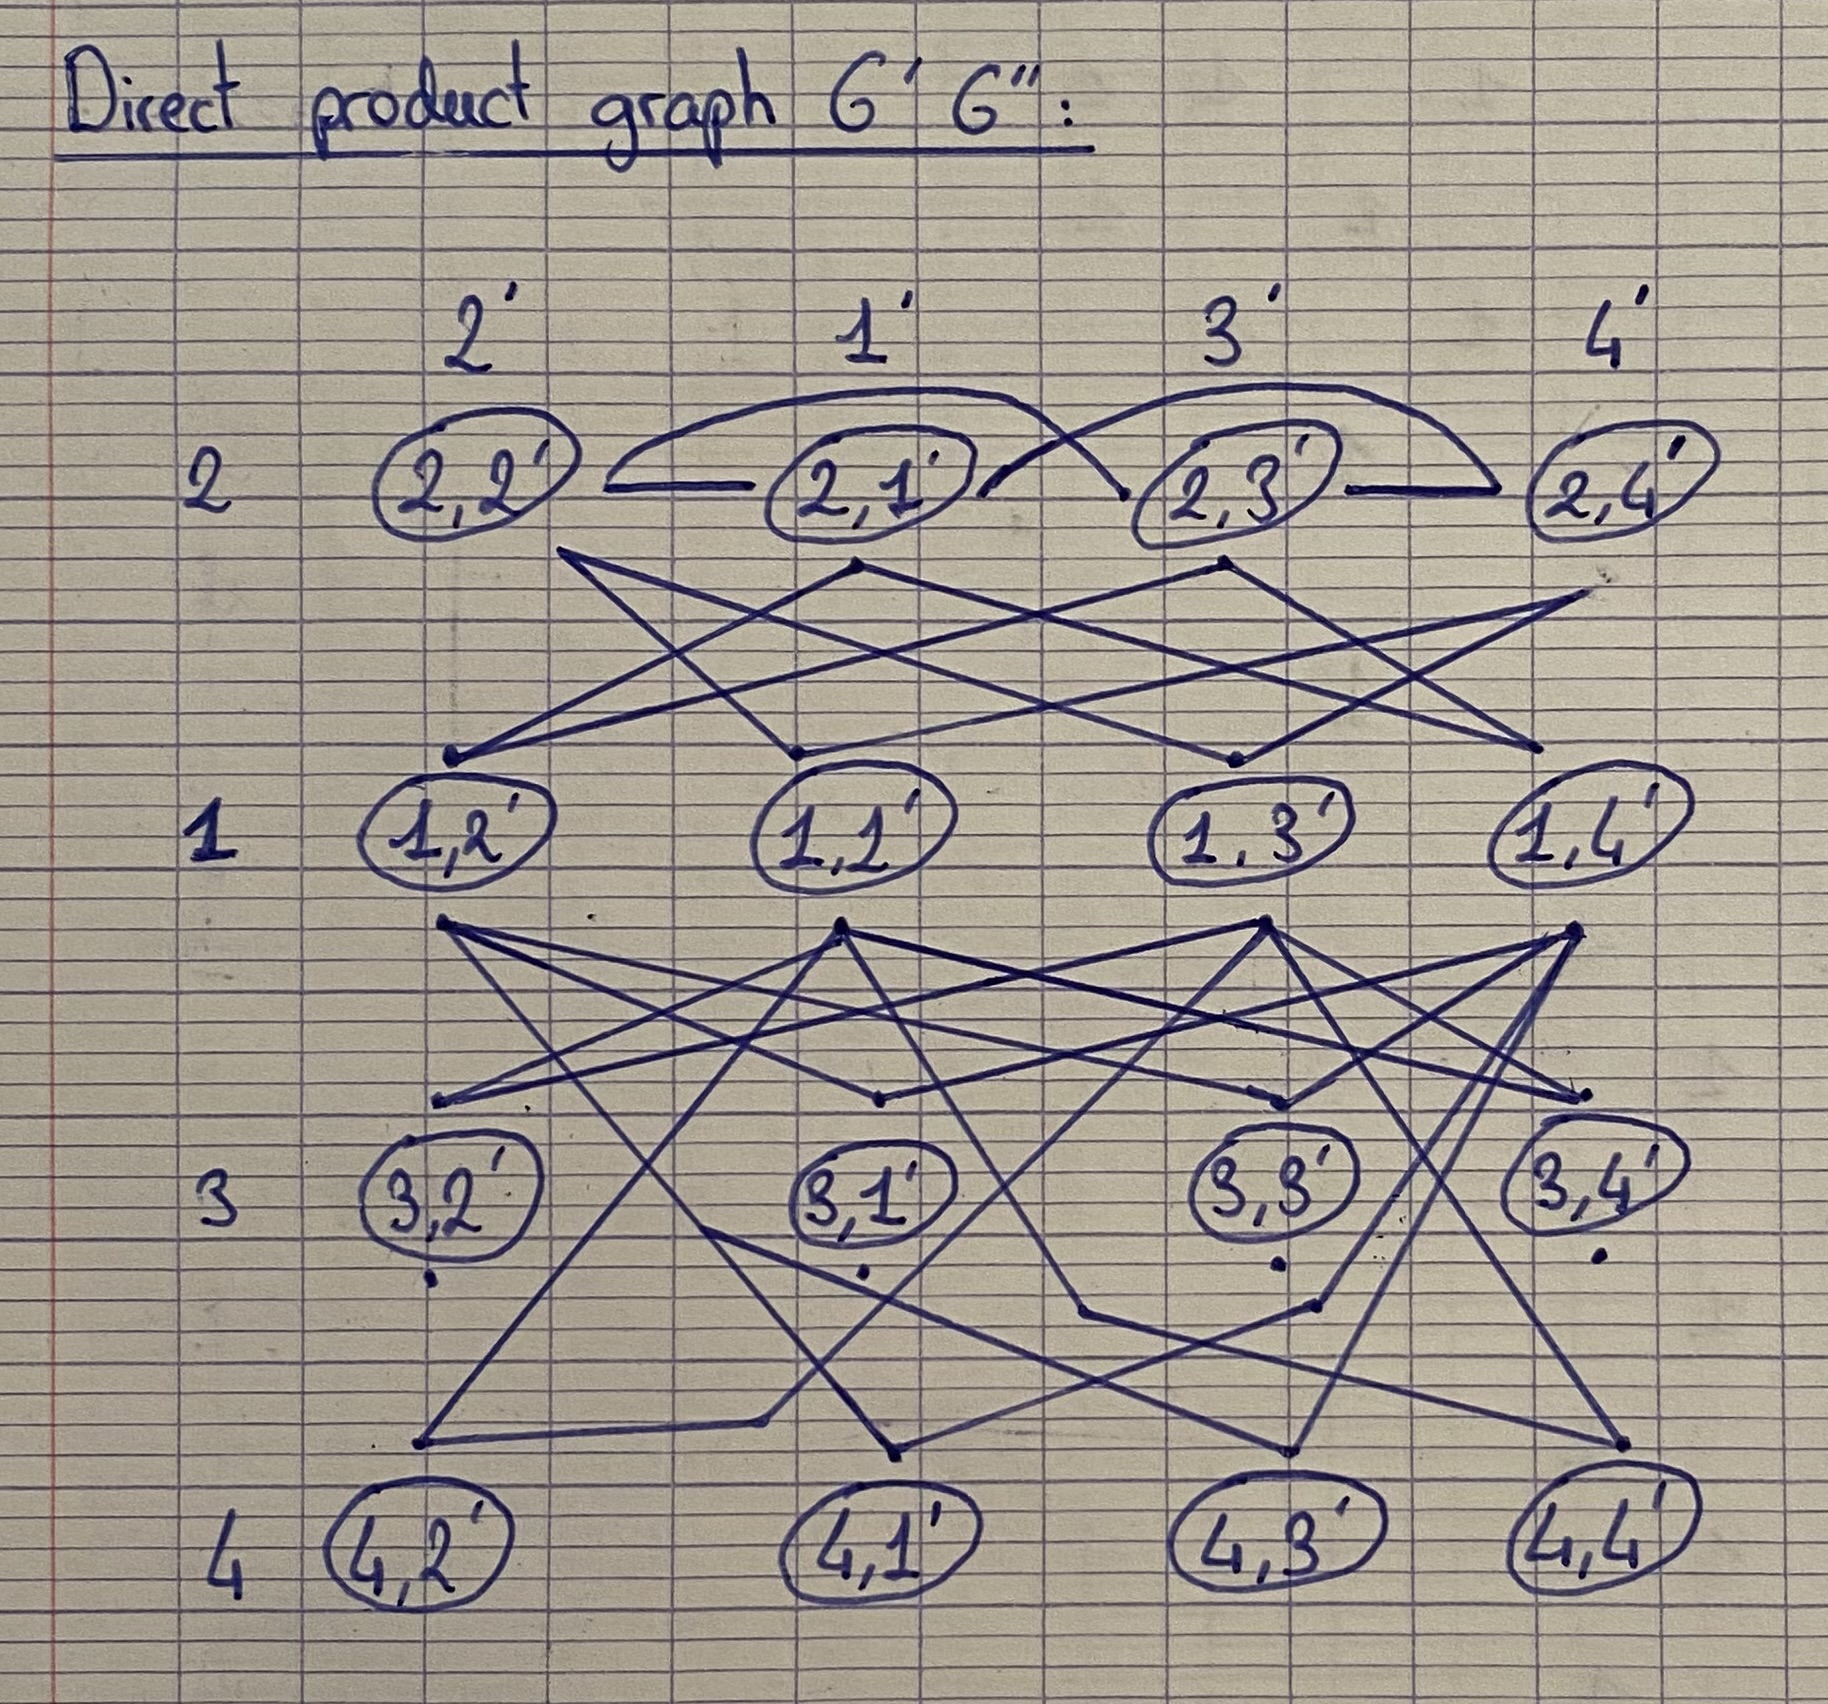 Direct product graph G' G'':
2' 1' 3' 4'
2 2,2' 2,1' 2,3' 2,4'
1 1,2' 1,1' 1,3' 1,4'
3 3,2' 3,1' 3,3' 3,4'
4 4,2' 4,1' 4,3' 4,4'